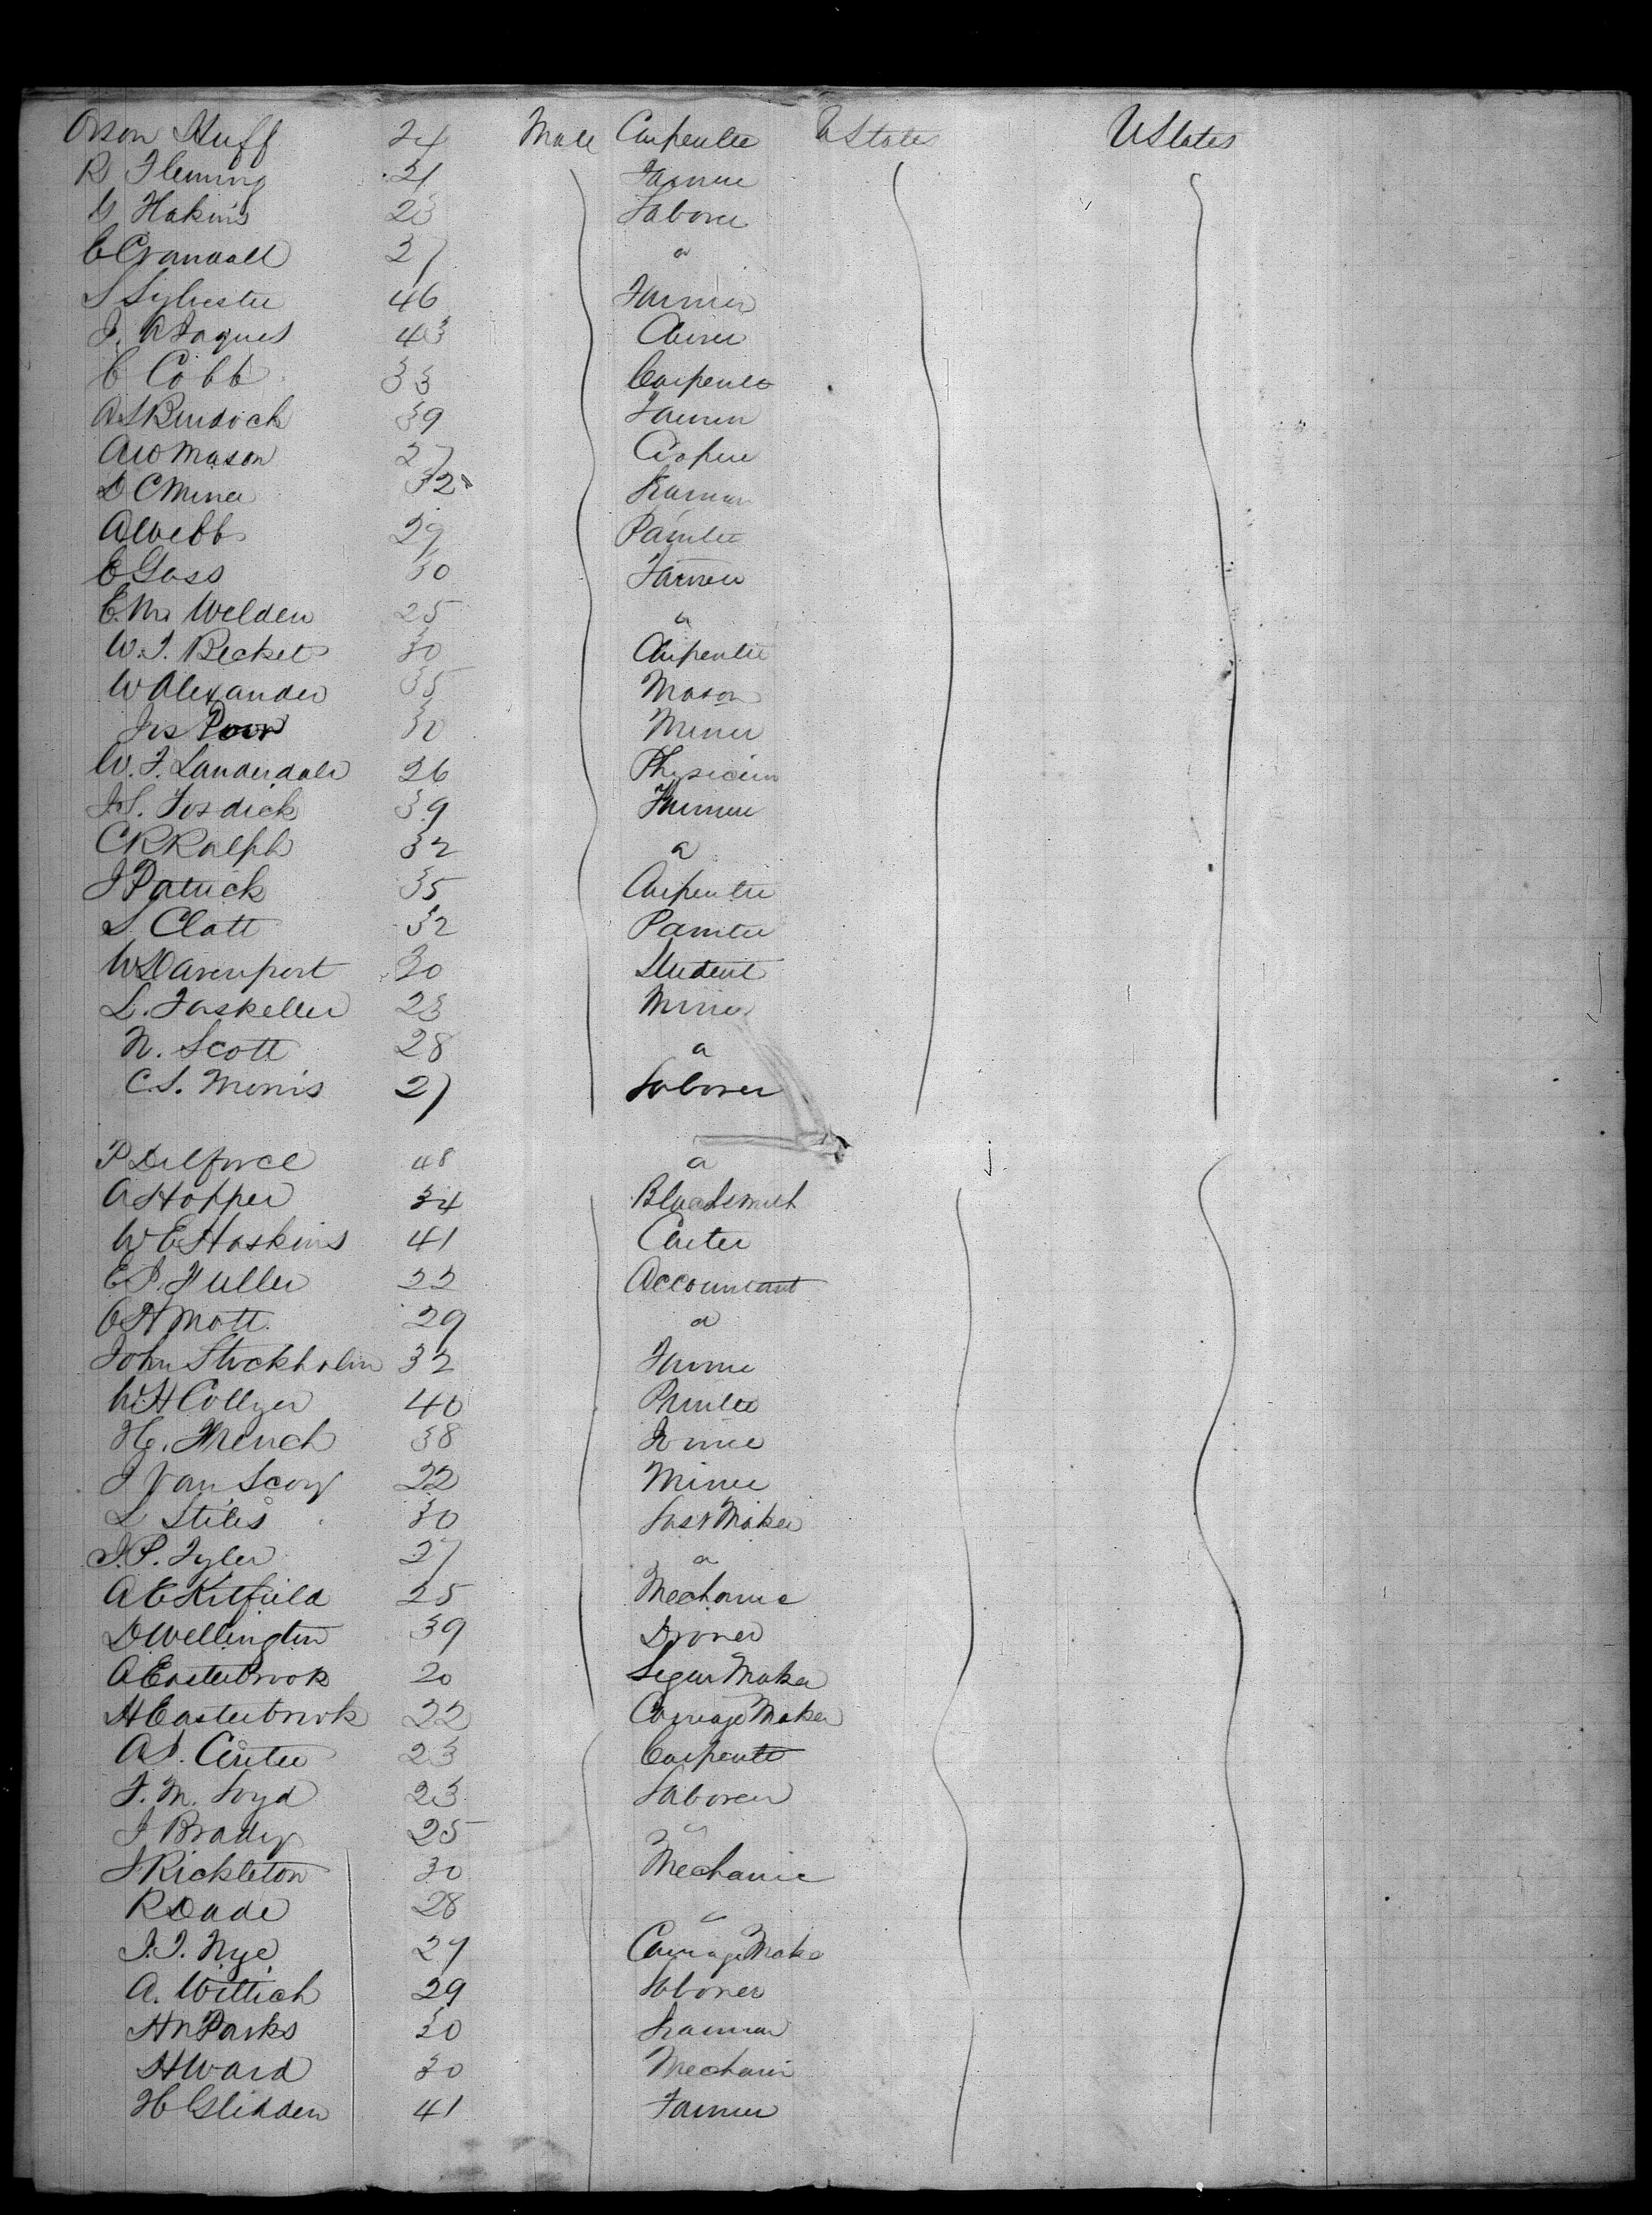 Orson Huff 24 Male Carpenter U States U States
R Fleming 21 Farmer
G Hakins 23 Laborer
C Crandall 27 "
S Sylvester 46 Farmer
J. A Jaques 43
C Cobb 33 Carpenter
A S Burdick 39 Farmer
A W Mason 27 Cooper
D C Miner 32 Seaman
A Webb 29 Painter
E Goss 30 Farmer
E. M. Welden 25 "
W. J. Becket 30 Carpenter
W Alexander 35 Mason
Jos Poor 30 Miner
W. F. Lauderdale 26 Physician
J. S. Fosdick 39 Farmer
C R Ralph 32 "
J Patrick 35 Carpenter
S. Clatt 32 Painter
W Davenport 30 Student
L. Faskeller 23 Miner
N. Scott 28 "
C. S. Morris 27 Laborer
P Delforce 48 "
A Hopper 34 Blacksmith
W E Haskins 41 Carter
E P. Fuller 22 Accountant
O H Mott 29 "
John Stockholm 32 Farmer
W H Collyer 40 Printer
H. French 38
J Van Scoy 22 Miner
L Stiles 30 Last Maker
J. P. Tyler 27 "
A E Kilfield 25 Mechanic
D Wellington 39 Drover
A Easterbrook 20 Segar Maker
H Easterbrook 22 Carriage Maker
A P. Carter 23 Carpenter
F. M. Loyd 23 Laborer
J Brady 25 "
J Rickleton 30 Mechanic
R Dade 28 "
J. J. Nye 27 Carriage Maker
A. Wittich 29 Laborer
H N Parks 30 Seaman
H Ward 30 Mechanic
H Glidden 41 Farmer